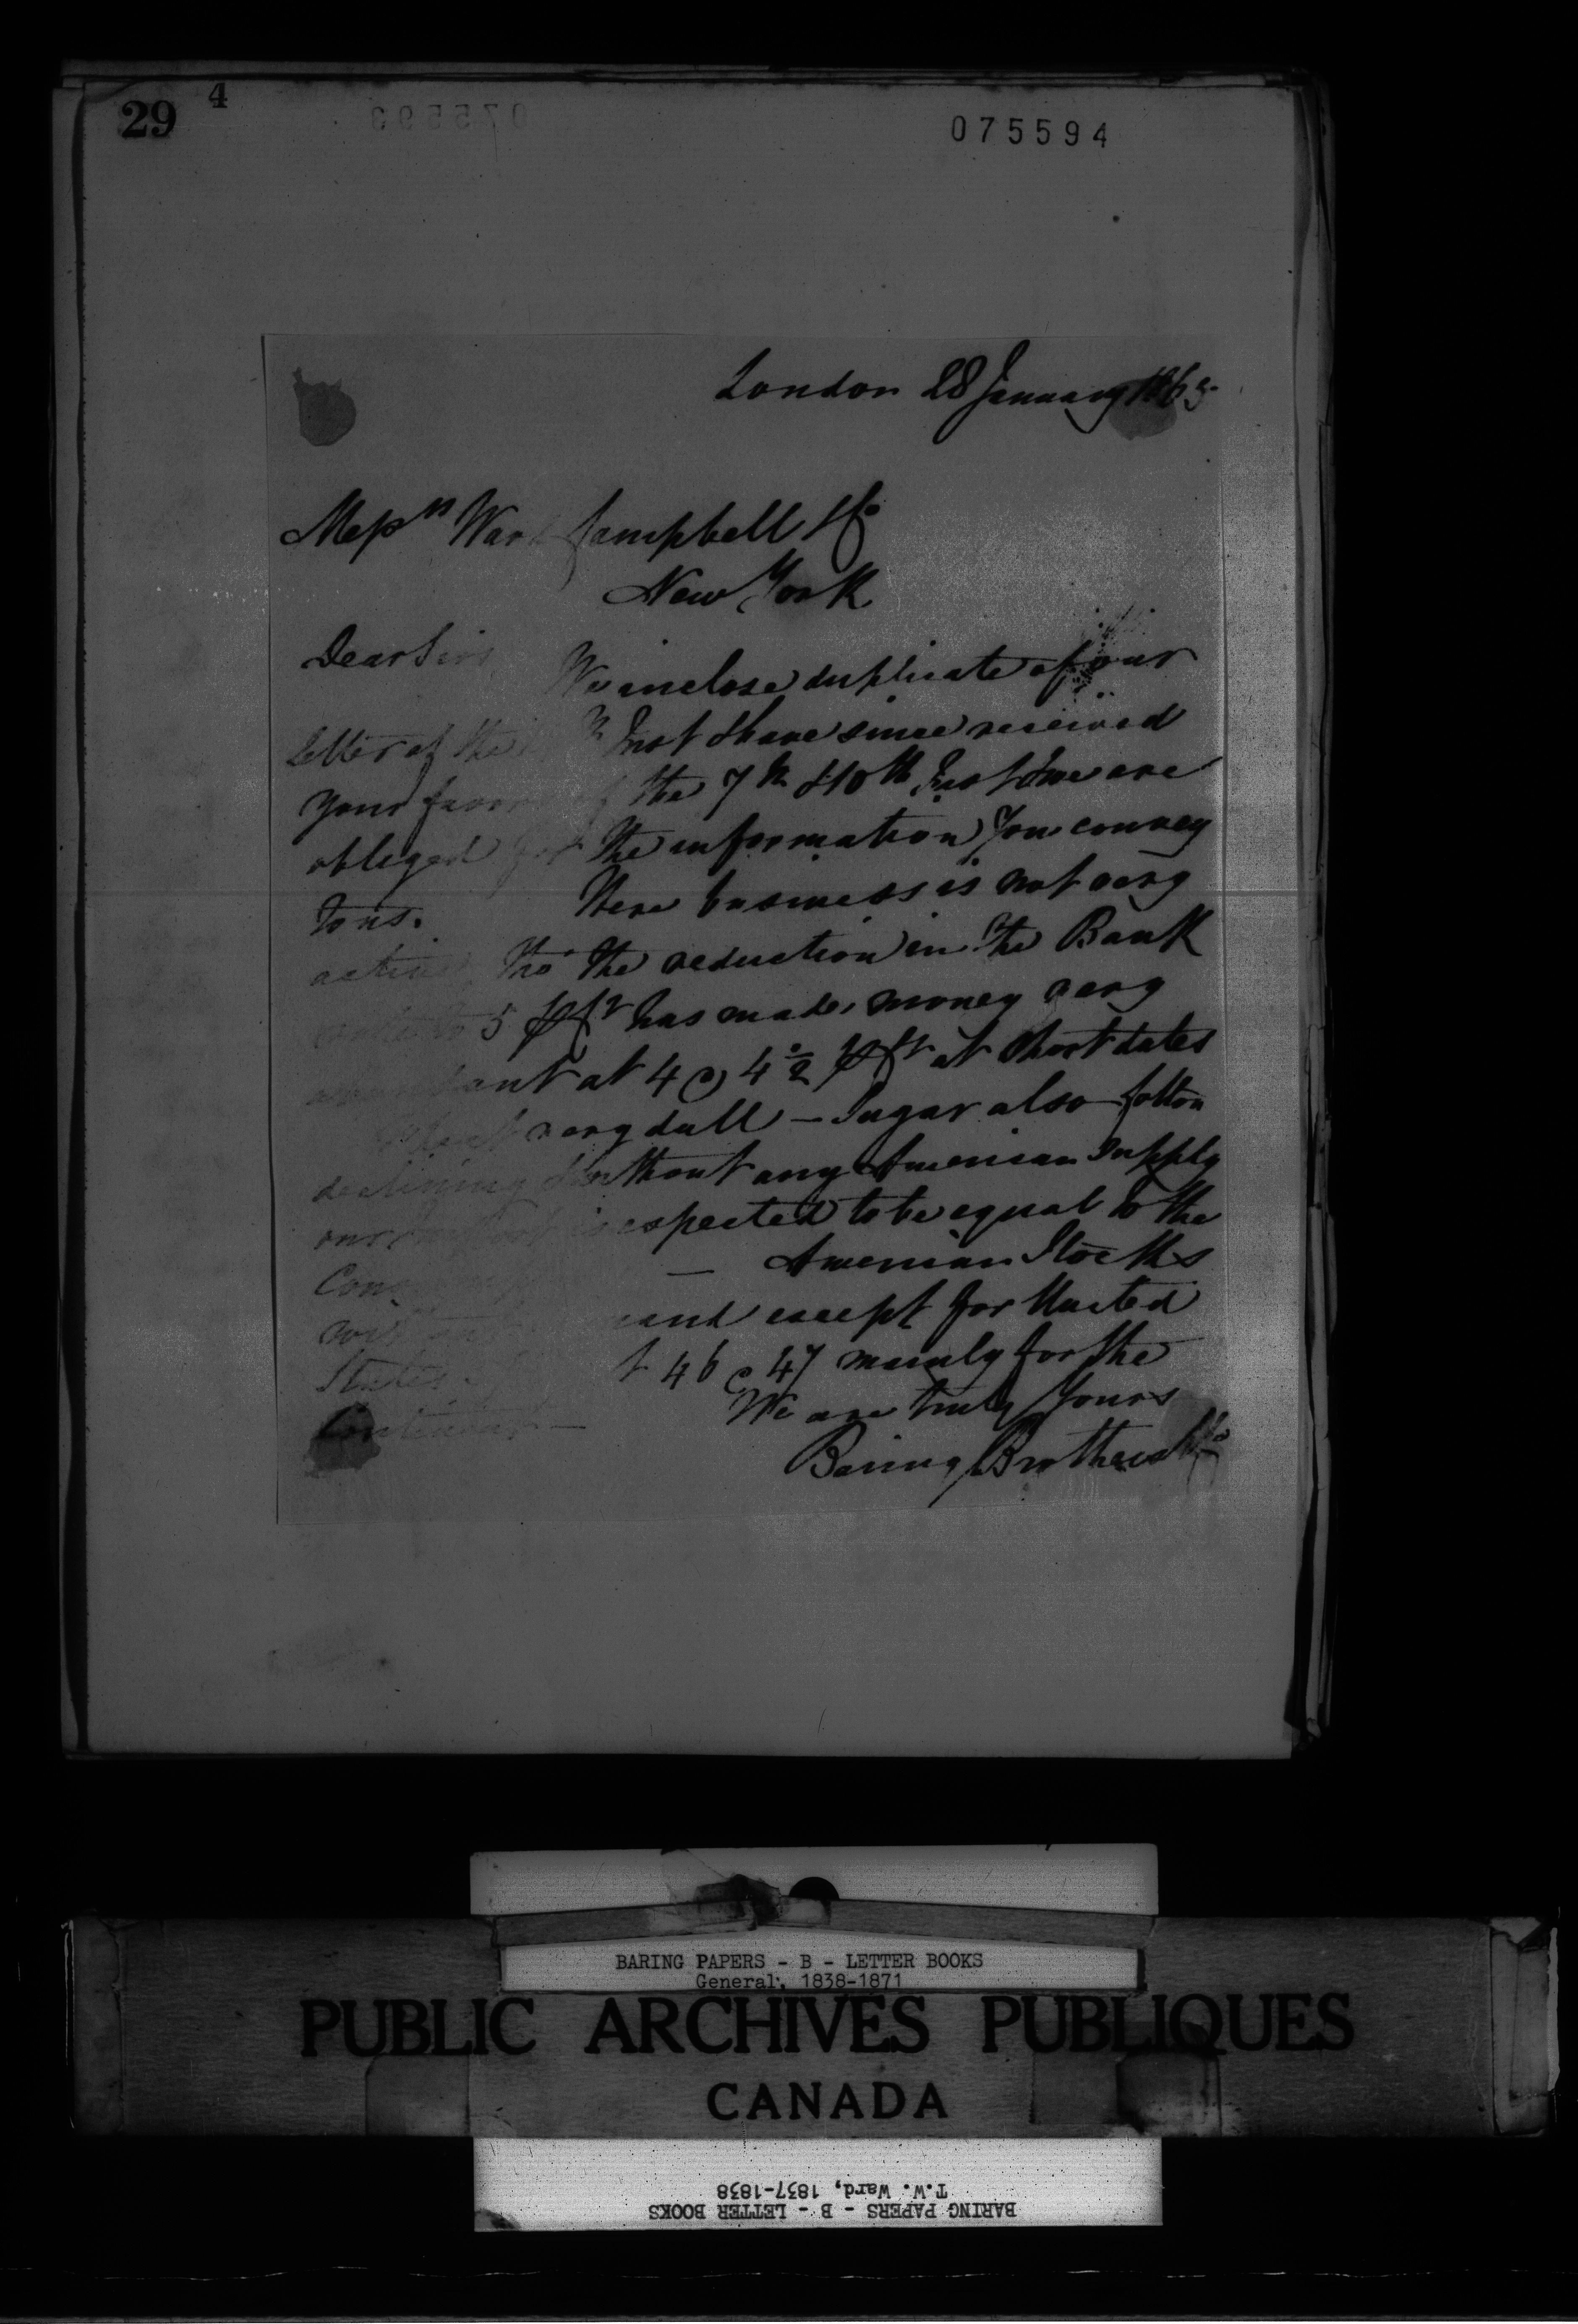 29 4
075593
075594
London 28 January 1865
Messrs Ward Campbell & Co
New York
Dear Sirs
We inclose duplicate of our
letter of the Inst & have since received
your favors of the 7th & 10th Inst & we are
obliged for the information you convey
to us.
Here business is not very
active, tho' the reduction in the Bank
5 p Ct has made money very
abundant at 4 @ 4 1/2 p Ct at short dates
very dull — Sugar also Cotton
declining & without any American supply
our is expected to be equal to the
— American Stocks
and except for United
States 46 @ 47 mainly for the
Continent —
We are truly Yours
Baring Brothers & Co
BARING PAPERS - B - LETTER BOOKS
General, 1838-1871
PUBLIC ARCHIVES PUBLIQUES
CANADA
BARING PAPERS - B - LETTER BOOKS
T.W. Ward, 1837-1838